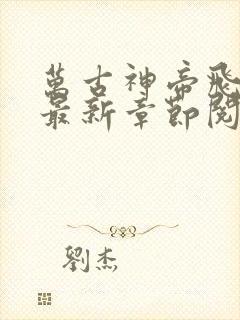 萬古神帝飛
最新章節閱
劉杰